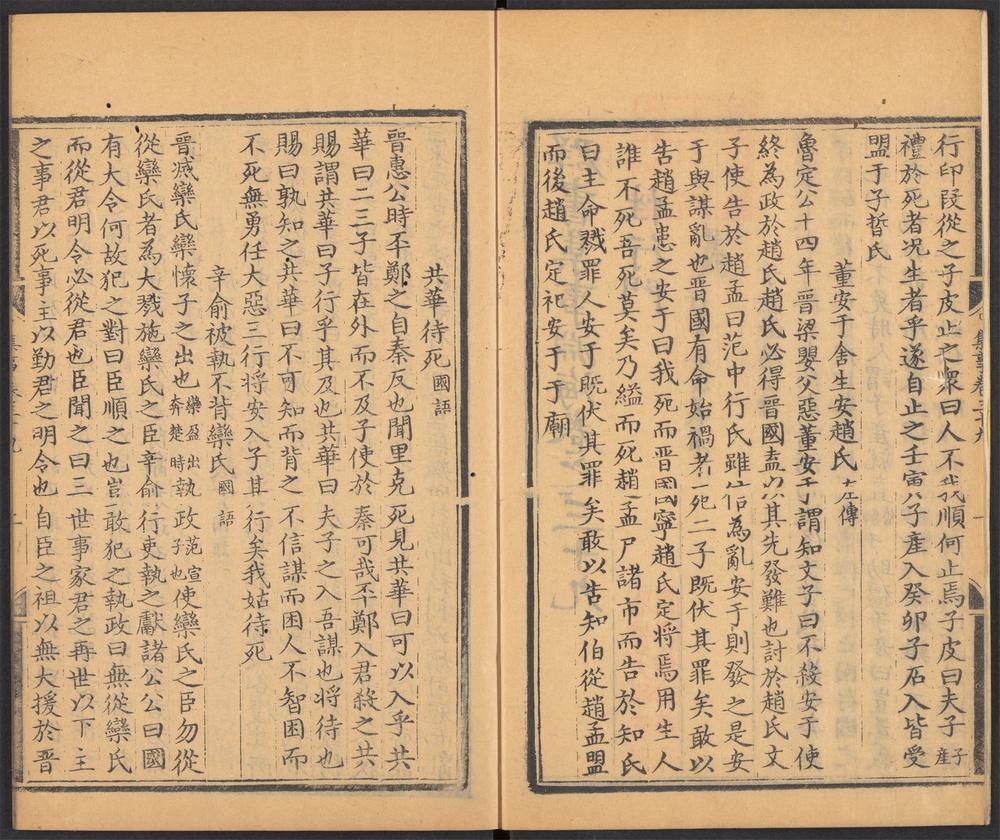 行印段從之子皮止之衆曰人不我順何止焉子皮曰夫子子產
禮於死者况生者乎遂自止之壬寅子產入癸卯子石入皆受
盟于子晳氏
董安于舍生安趙氏左傳
魯定公十四年晉梁嬰父惡董安于謂知文子曰不殺安于使
終為政於趙氏趙氏必得晉國盍以其先發難也討於趙氏文
子使告於趙孟曰范中行氏雖信為亂安于則發之是安
于與謀亂也晉國有命始禍者死二子既伏其罪矣敢以
告趙孟患之安于曰我死而晉國寧趙氏定將焉用生人
誰不死吾死莫矣乃縊而死趙孟尸諸市而告於知氏
曰主命戮罪人安于既伏其罪矣敢以告知伯從趙孟盟
而後趙氏定祀安于于廟
共華待死國語
晉惠公時丕鄭之自秦反也聞里克死見共華曰可以入乎共
華曰二三子皆在外而不及子使於秦可哉丕鄭入君殺之共
賜謂共華曰子行乎其及也共華曰夫子之入吾謀也將待也
賜曰孰知之共華曰不可知而背之不信謀而困人不智困而
不死無勇任大惡三行將安入子其行矣我姑待死
辛俞被執不背欒氏國語
晉滅欒氏欒懷子之出也欒盈出奔楚時執政范宣子也使欒氏之臣勿從
從欒氏者為大戮施欒氏之臣辛俞行吏執之獻諸公公曰國
有大令何故犯之對曰臣順之也豈敢犯之執政曰無從欒氏
而從君明令必從君也臣聞之曰三世事家君之再世以下主
之事君以死事主以勤君之明令也自臣之祖以無大援於晉